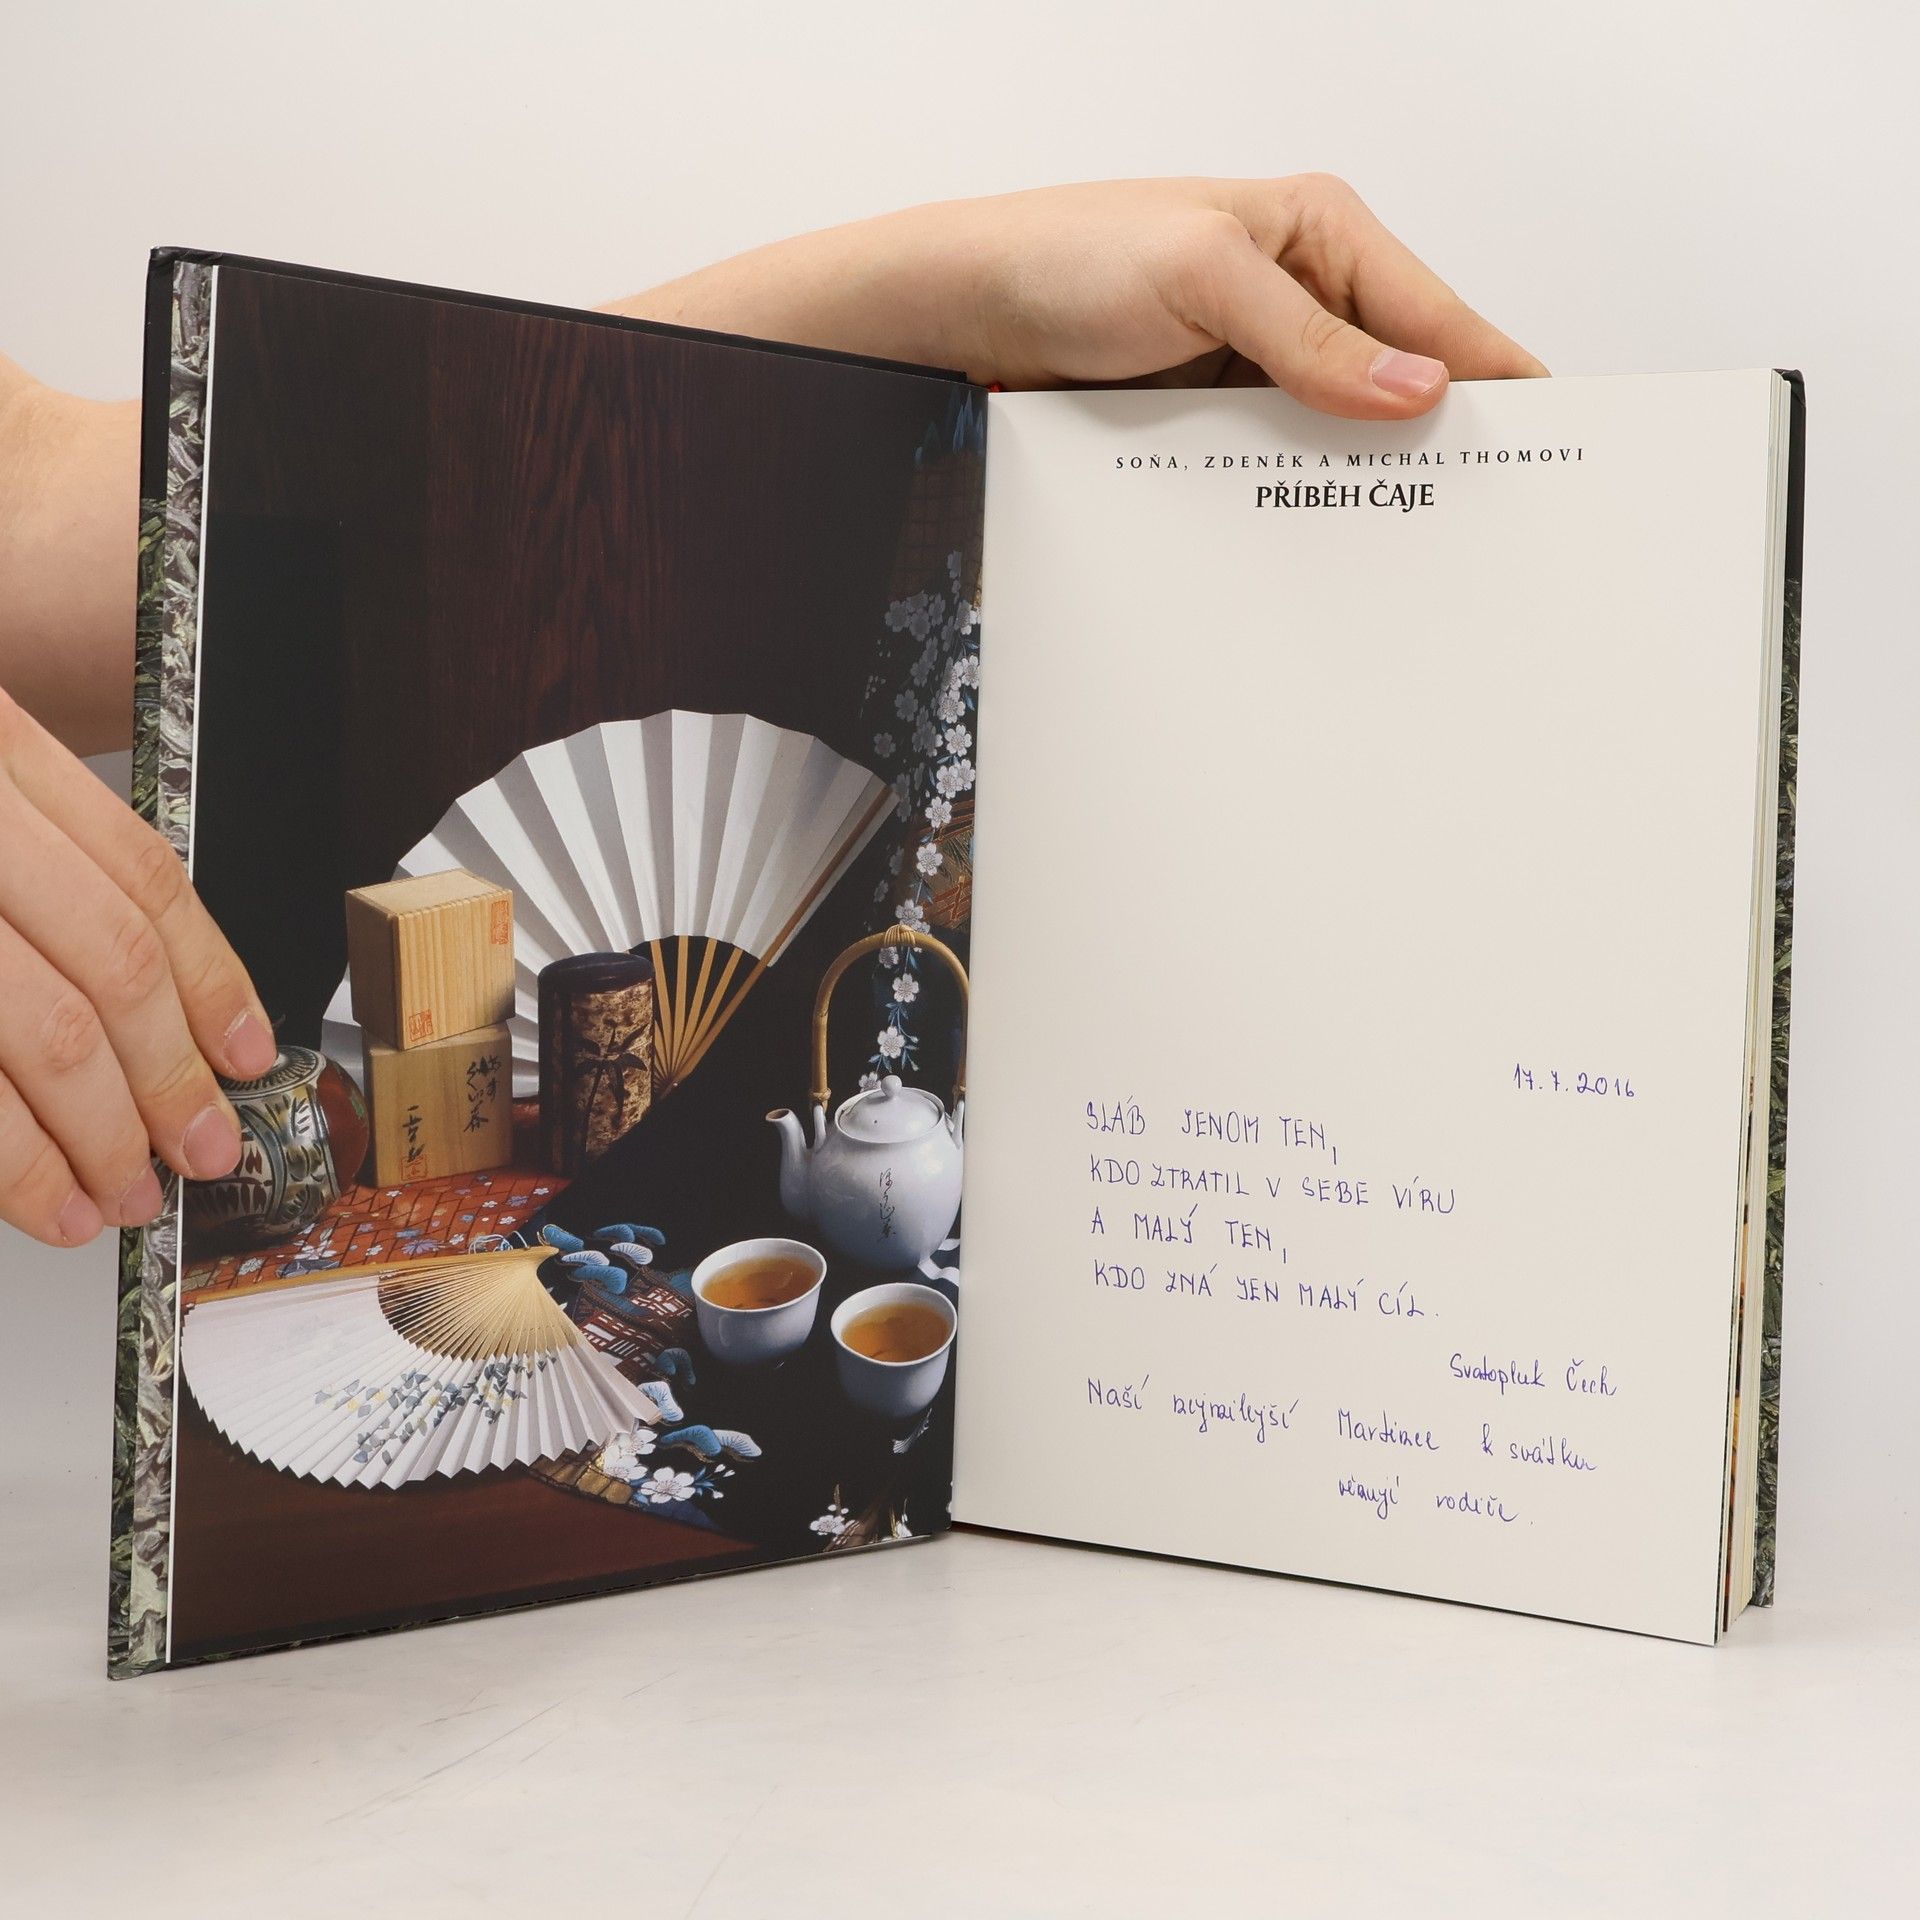 SOŇA, ZDENĚK A MICHAL THOMOVI
PŘÍBĚH ČAJE
17. 7. 2016
SLÁB JENOM TEN,
KDO ZTRATIL V SEBE VÍRU
A MALÝ TEN,
KDO ZNÁ JEN MALÝ CÍL.
Svatopluk Čech
Naší nejmilejší Martince k svátku
věnují rodiče.